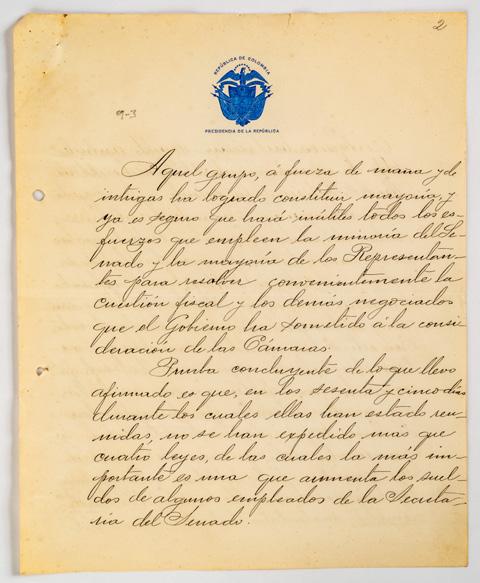 2
REPÚBLICA DE COLOMBIA
PRESIDENCIA DE LA REPÚBLICA
9-3
Aquel grupo, á fuerza de maña y de
intrigas ha logrado constituir mayoría, y
ya es seguro que hará inútiles todos los es-
fuerzos que empleen la minoría del Se-
nado y la mayoría de los Representan-
tes para resolver convenientemente la
cuestión fiscal y los demás negociados
que el Gobierno ha sometido á la consi-
deración de las Cámaras.
Prueba concluyente de lo que llevo
afirmado es que, en los sesenta y cinco días
durante los cuales ellas han estado reu-
nidas, no se han expedido más que
cuatro leyes, de las cuales la más im-
portante es una que aumenta los suel-
dos de algunos empleados de la Secreta-
ría del Senado.